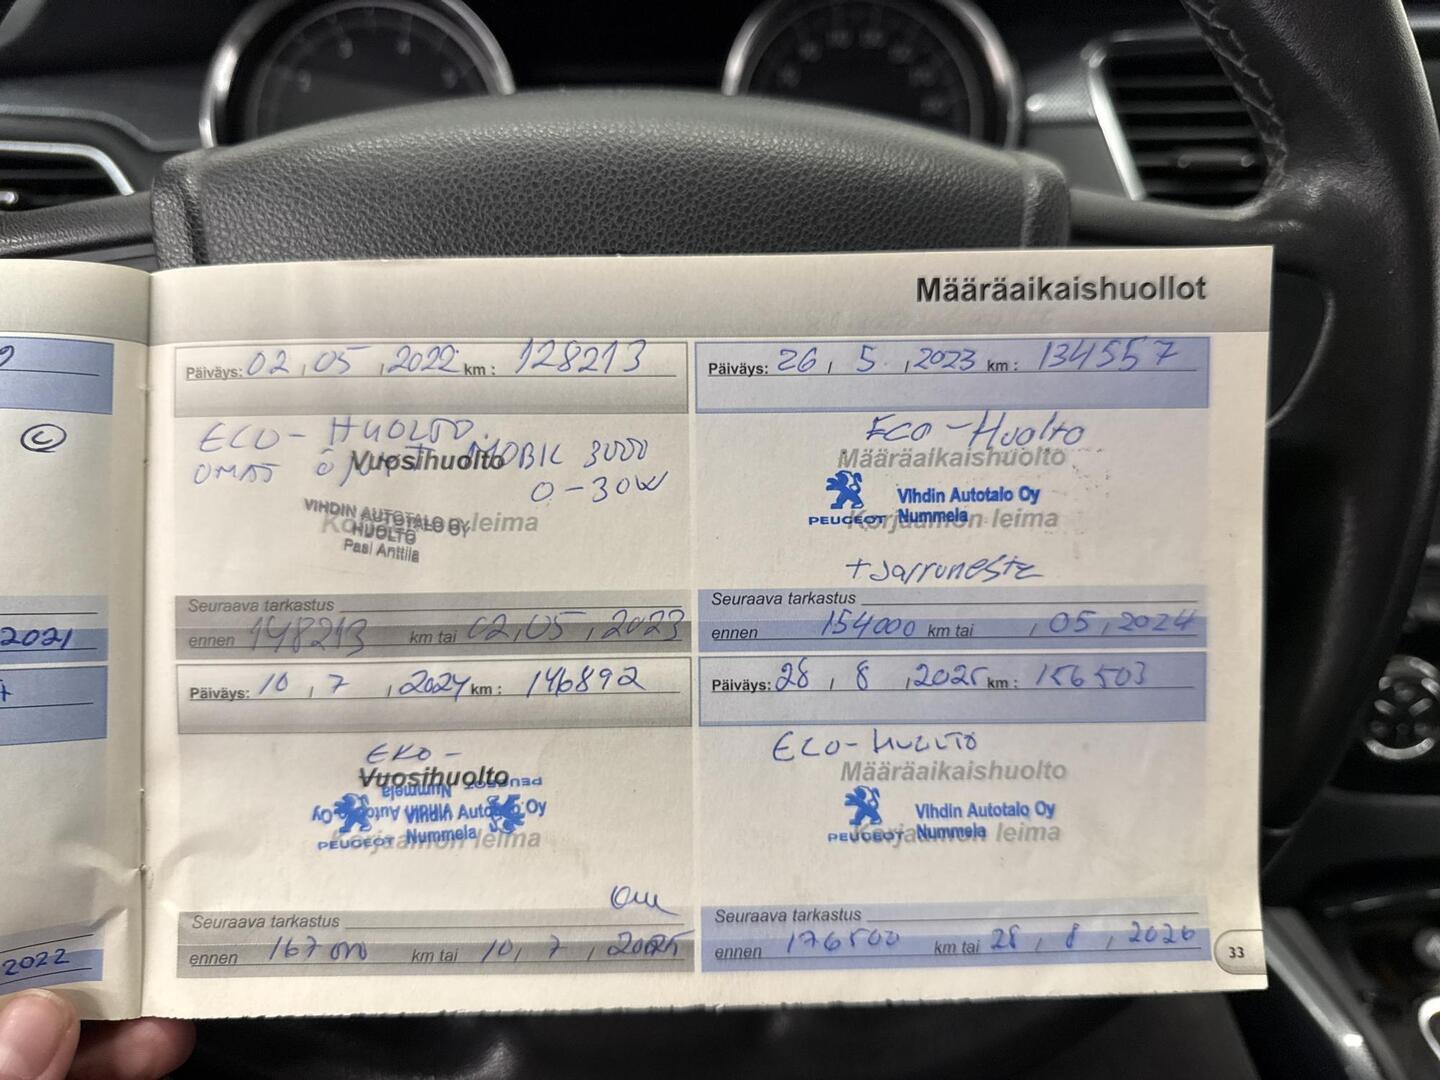 Määräaikaishuollot
2021
2022
Päiväys: 02, 05, 2022 km: 128213
ECO-HUOLTO.
OMAT Vuosihuolto MOBIL 3000
0-30W
VIHDIN AUTOTALO OY
HUOLTO
Pasi Anttila
Korjaamon leima
Seuraava tarkastus
ennen 148213 km tai 02, 05, 2023
Päiväys: 26, 5, 2023 km: 134557
ECO-Huolto
Määräaikaishuolto
Vihdin Autotalo Oy
PEUGEOT Nummela
Korjaamon leima
+Jarruneste
Seuraava tarkastus
ennen 154000 km tai , 05, 2024
Päiväys: 10, 7, 2024 km: 146892
EKO-
Vuosihuolto
PEUGEOT Nummela
Vihdin Autotalo Oy
Vihdin Autotalo Oy
PEUGEOT Nummela
Korjaamon leima
Seuraava tarkastus
ennen 167000 km tai 10, 7, 2025
Päiväys: 28, 8, 2025 km: 156503
ECO-HUOLTO
Määräaikaishuolto
Vihdin Autotalo Oy
PEUGEOT Nummela
Korjaamon leima
Seuraava tarkastus
ennen 176500 km tai 28, 8, 2026
33